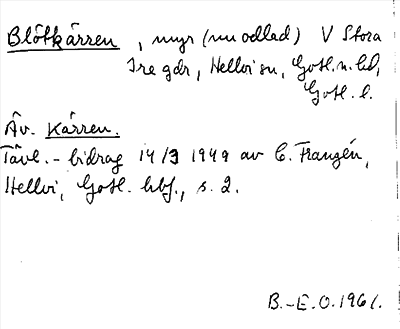 Blötkärren, myr (nu odlad) V Stora
Ire gdr, Hellvi sn, Gotl. n. hd,
Gotl. l.
Äv. Kärren.
Tävl.-bidrag 14/3 1949 av C. Franzén,
Hellvi, Gotl. hbf., s. 2.
B.-E.O. 1961.